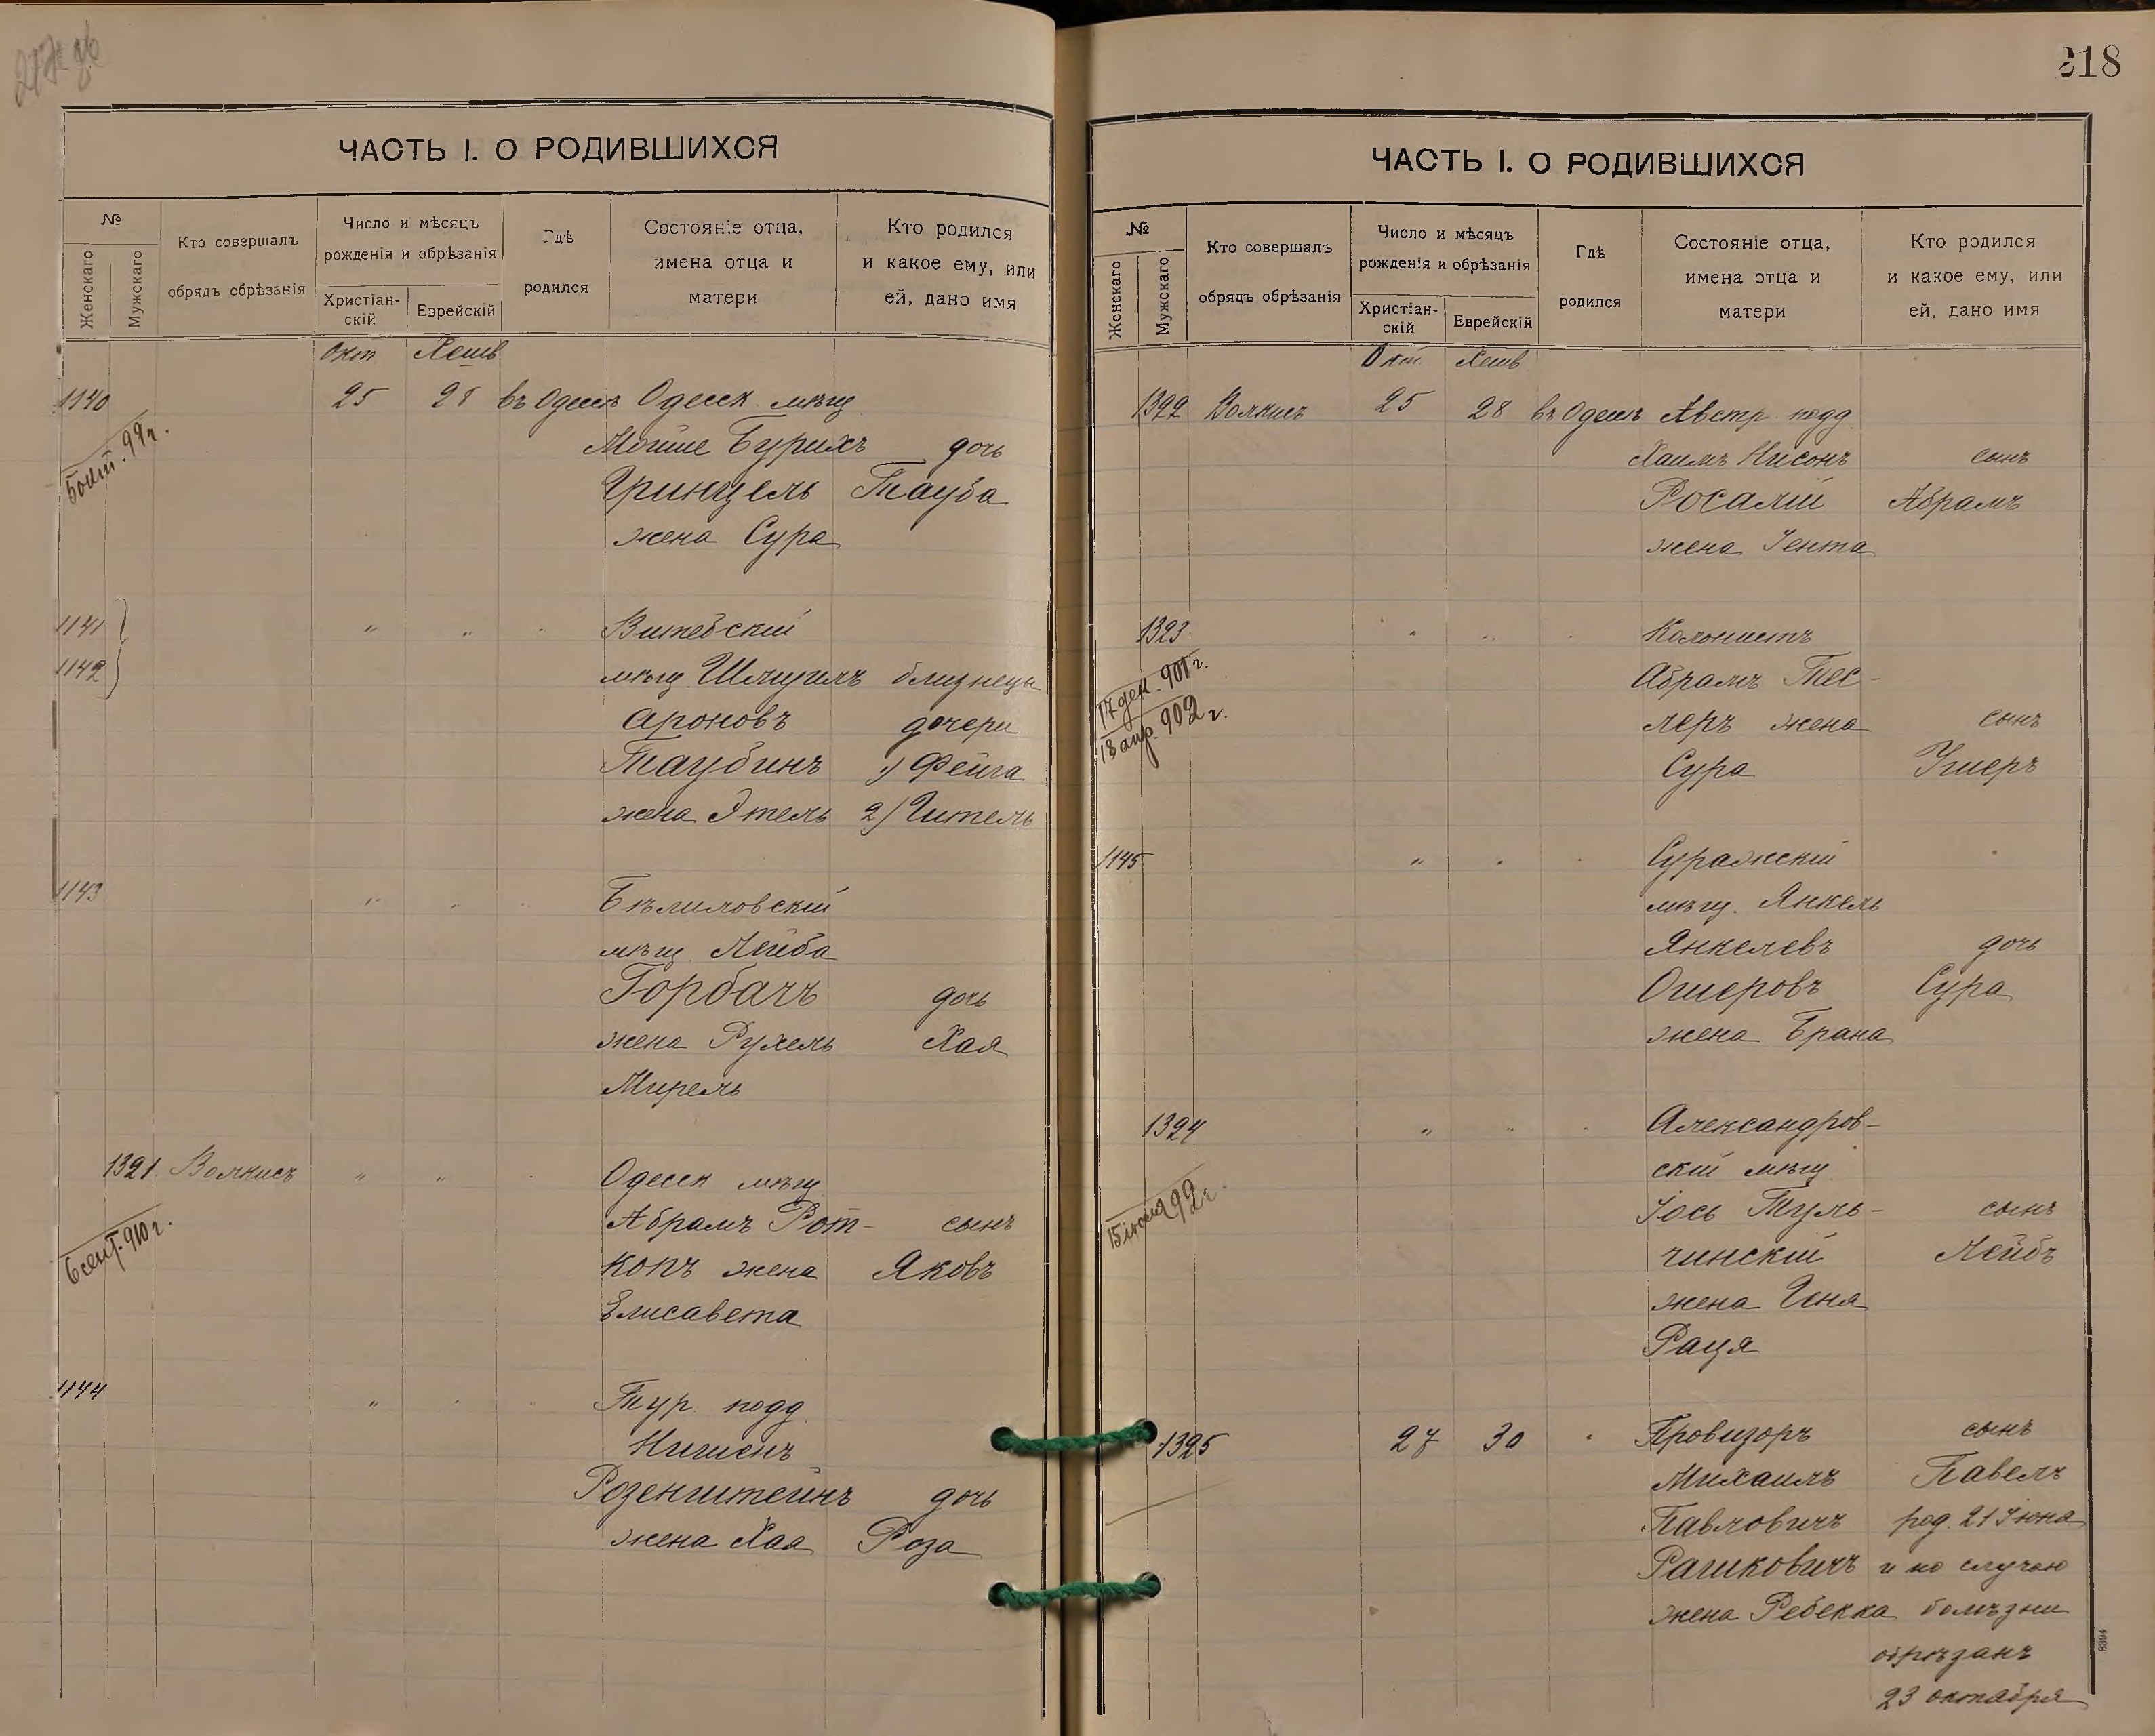 218
ЧАСТЬ I. О РОДИВШИХСЯ
№
Женскаго
Мужскаго
Кто совершалъ
обрядъ обрѣзанія
Число и мѣсяцъ
рожденія и обрѣзанія
Христіан-
скій
Еврейскій
Гдѣ
родился
Состояніе отца,
имена отца и
матери
Кто родился
и какое ему, или
ей, дано имя
Окт Хешв
1140 25 28 въ Одессѣ Одесск мѣщ
Мойше Бурихъ дочь
5 окт. 99 г.
Гринцель Тауба
жена Сура
1141 " " Витебскій
1142 мѣщ Шмуилъ близнецы
Ароновъ дочери
Таубинъ 1) Фейга
жена Этель 2) Гитель
1143 " " Бѣлиловскій
мѣщ Лейба
Горбачъ дочь
жена Рухель Хая
Мирель
1321 Волкисъ " " Одесск мѣщ
Абрамъ Рот- сынъ
6 сент. 910 г.
копъ жена Яковъ
Елисавета
1144 " Тур. подд.
Нисиенъ
Розенштейнъ дочь
жена Хая Роза
ЧАСТЬ I. О РОДИВШИХСЯ
№
Женскаго
Мужскаго
Кто совершалъ
обрядъ обрѣзанія
Число и мѣсяцъ
рожденія и обрѣзанія
Христіан-
скій
Еврейскій
Гдѣ
родился
Состояніе отца,
имена отца и
матери
Кто родился
и какое ему, или
ей, дано имя
Окт. Хешв
1322 Волкисъ 25 28 въ Одессѣ Австр подд
Хаимъ Нисонъ сынъ
Росалій Абрамъ
жена Іента
1323 " " Колонистъ
17 дек. 901 г.
Абрамъ Тес-
18 апр. 902 г.
леръ жена сынъ
Сура Ушеръ
1145 " " Суражскій
мѣщ. Янкель
Янкелевъ дочь
Ошеровъ Сура
жена Брана
1324 " " Александров-
скій мѣщ
Іось Туль- сынъ
чинскій Лейбъ
жена Геня
Рася
1325 27 30 " Провизоръ сынъ
Михаилъ Павелъ
Павловичъ род. 21 Іюна
Рашковичъ и по случаю
жена Ребекка болѣзни
обрѣзанъ
23 октября
9394